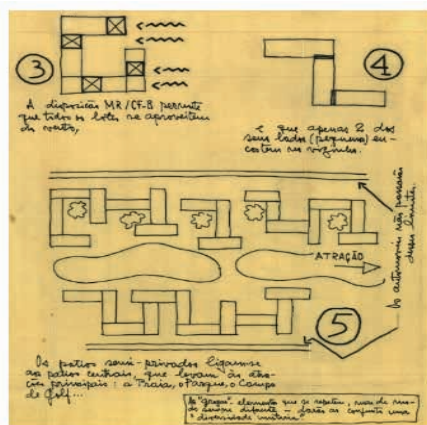 3
A disposição MR/CF-B permite
que todos os lotes se aproveitem
do vento,
4
e que apenas 2 dos
seus lados (pequenos) en-
costem nos vizinhos.
Os automóveis não passarão
desses limites.
ATRAÇÃO
5
Os patios semi-privados ligam-se
ao patios centrais, que levam às atra-
ções principais: a Praia, o Parque, o Campo
de Golf...
As "gregas" elementos que se repetem, mas de mo-
do sempre diferente — darão ao conjunto uma
"diversidade unitária"